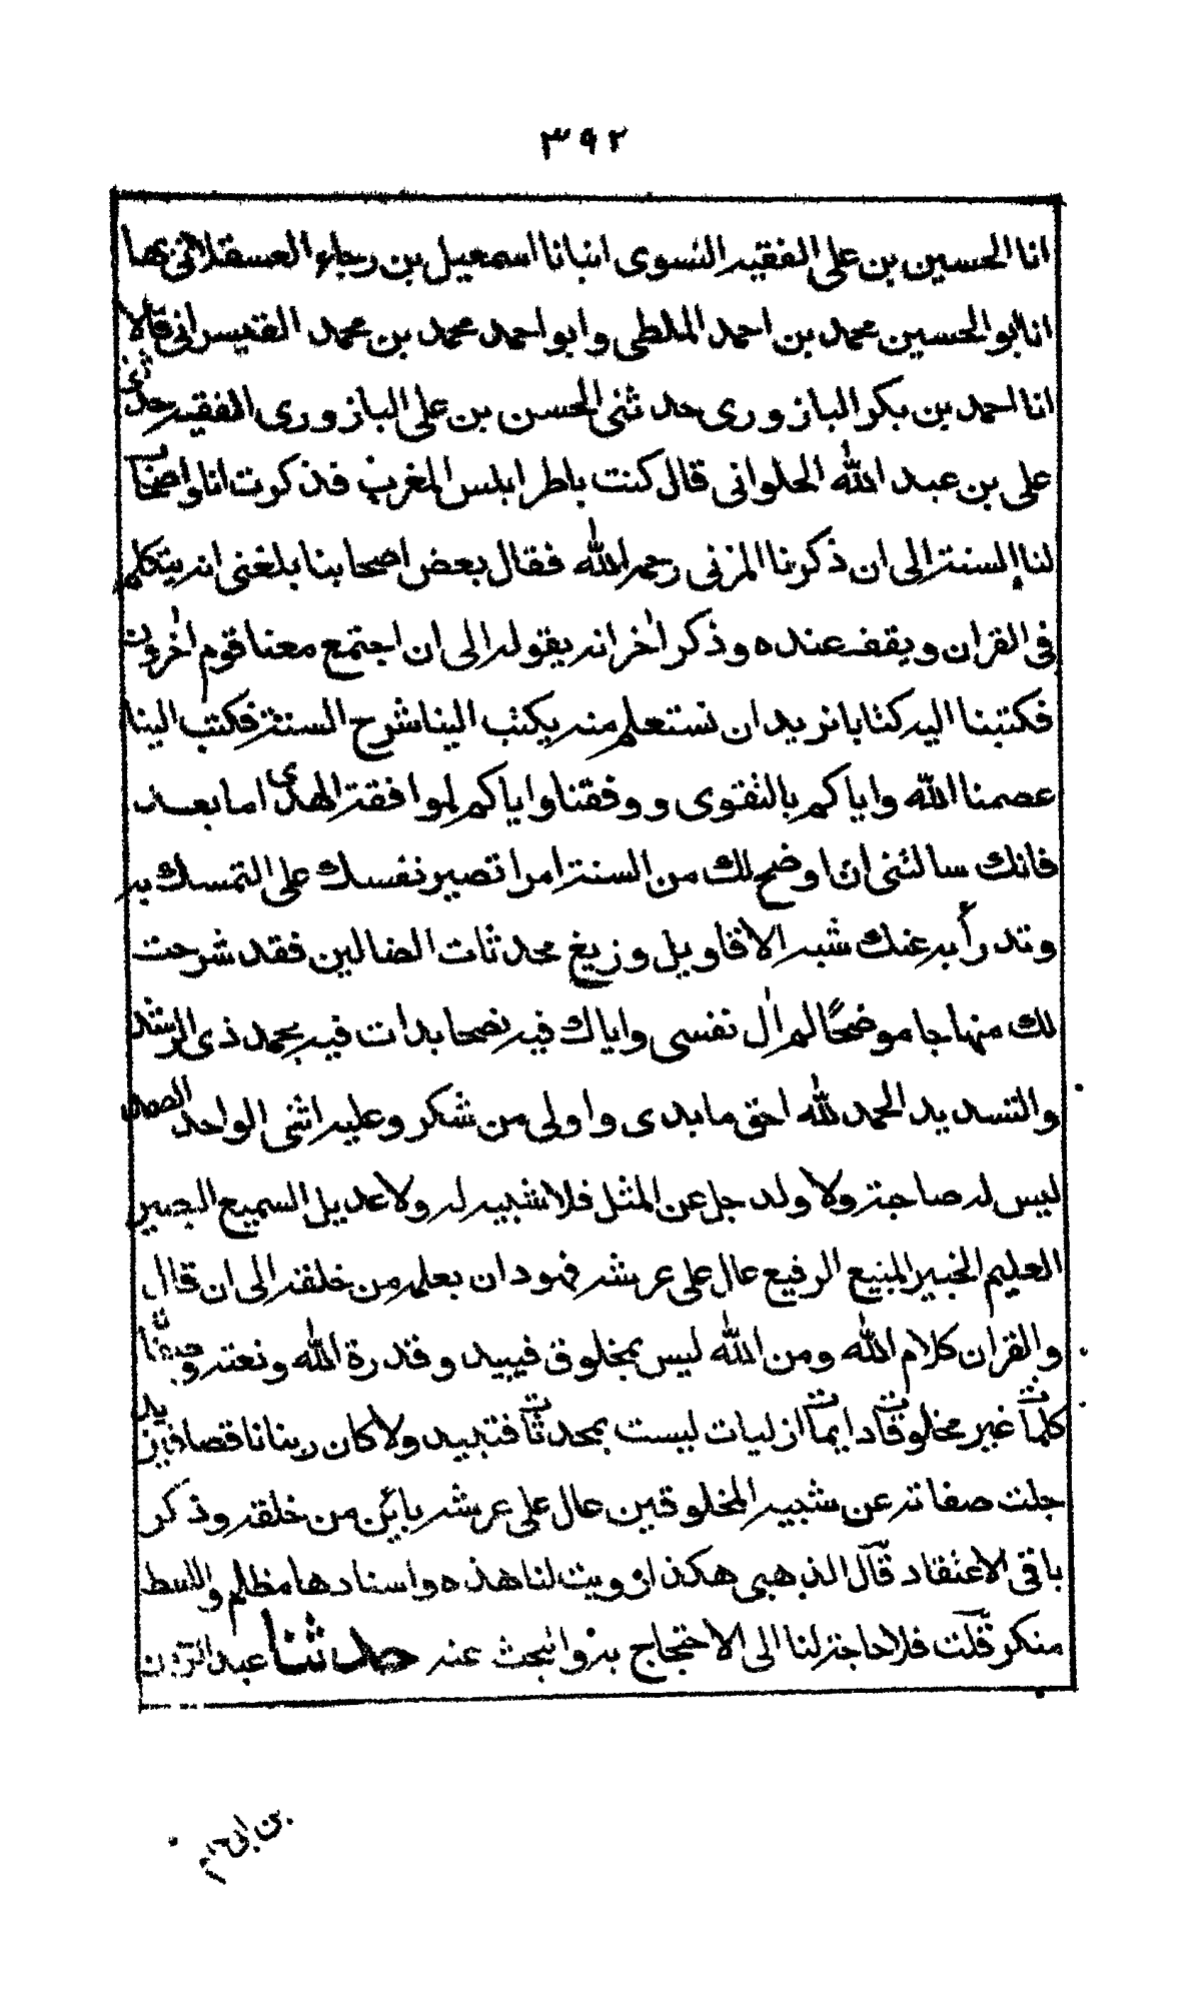 ٣٩٢
انا الحسين بن على الفقيه النسوى انبانا اسمعيل بن رجاء العسقلانى بها
انا ابو الحسين محمد بن احمد الملطى وابو احمد محمد بن محمد القيسرانى قالا
انا احمد بن بكر البازورى حدثنى الحسن بن على البازورى الفقيه حدثنى
على بن عبد الله الحلوانى قال كنت باطرابلس المغرب فذكرت انا واصحاب
لنا السنة الى ان ذكرنا المزنى رحمه الله فقال بعض اصحابنا بلغنى انه يتكلم
فى القران ويقف عنده وذكر اخر انه يقوله الى ان اجتمع معنا قوم اخرون
فكتبنا اليه كتابا نريد ان نستعلم منه يكتب الينا شرح السنة فكتب الينا
عصمنا الله واياكم بالتقوى ووفقنا واياكم لموافقة الهدى اما بعد
فانك سالتنى ان اوضح لك من السنة امرا تصير نفسك على التمسك به
وتدرأ به عنك شبه الاقاويل وزيغ محدثات الضالين فقد شرحت
لك منهاجا موضحًا لم اٰل نفسى واياك فيه نصحا بدات فيه بحمد ذى الرشد
والتسديد الحمد لله احق ما بدى واولى من شكر وعليه اثنى الواحد الصمد
ليس له صاحبة ولا ولد جل عن المثل فلا شبيه له ولا عديل السميع البصير
العليم الخبير المنيع الرفيع عال على عرشه فهو دان بعلمه من خلقه الى ان قال
والقران كلام الله ومن الله ليس بمخلوق فيبيد وقدرة الله ونعته وصفاته
كلمات غير مخلوقات دايمات ازليات ليست بمحدثات فتبيد ولا كان ربنا ناقصا فيزيد
جلت صفاته عن شبيه المخلوقين عال على عرشه بائن من خلقه وذكر
باقى الاعتقاد قال الذهبى هكذا رويت لنا هذه واسنادها مظلم واللفظ
منكر قلت فلا حاجة لنا الى الاحتجاج به والبحث عنه حدثنا عبد الرحمن
بن ابى حاتم